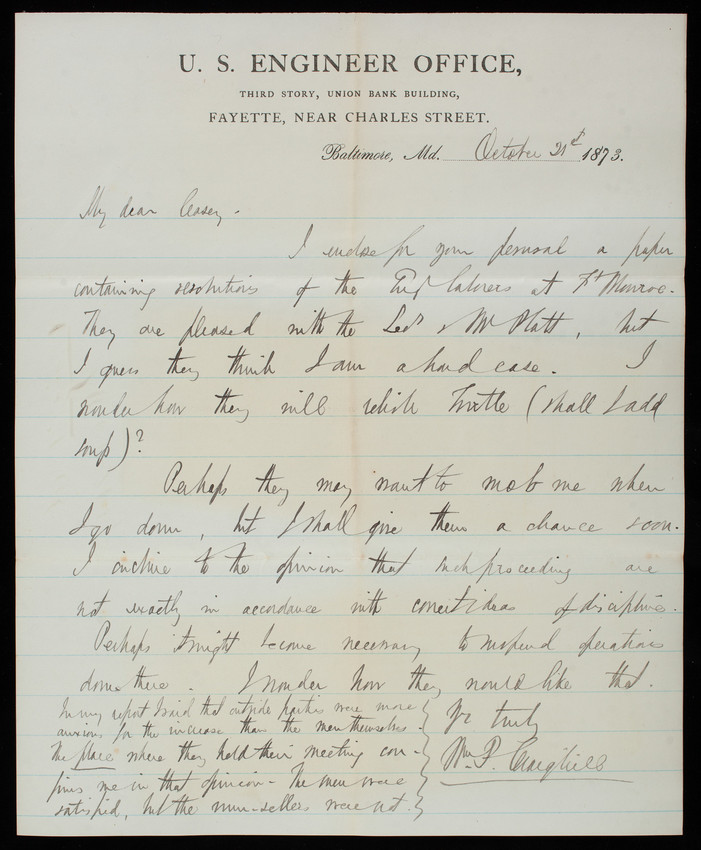 U. S. ENGINEER OFFICE,
THIRD STORY, UNION BANK BUILDING,
FAYETTE, NEAR CHARLES STREET.
Baltimore, Md. October 21st 1873.
My dear Casey -
I enclose for your perusal a paper
containing resolutions of the laborers at Ft Monroe.
They are pleased with the & Mr Platt, but
I guess they think I am a hard case. I
wonder how they will relish Turtle (shall I add
soup)?
Perhaps they may want to mob me when
I go down, but I shall give them a chance soon.
I incline to the opinion that such proceeding are
not exactly in accordance with correct ideas of discipline.
Perhaps it might become necessary to suspend operations
down there. I wonder how they would like that.
In my report I said that outside parties were more
anxious for the increase than the men themselves.
The place where they held their meeting con-
firms me in that opinion - The men were
satisfied, but the rum-sellers were not.
Yr truly
Wm. P. Craighill